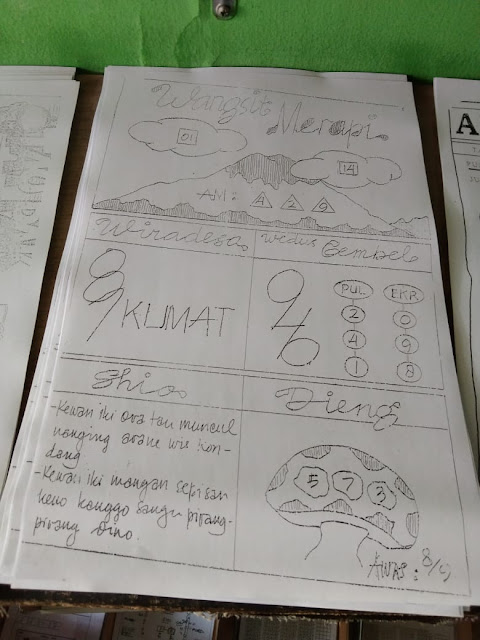 Wangsit
Merapi
01
14
AM : 4 2 9
Wiradesa
Wedus Gembel
8
9 KUMAT
9
4 6
PUL EKR
2 0
4 9
1 8
Shio
Dieng
- Kewan iki ora tau muncul
nanging arane wis kon-
dang
- Kewan iki mangan sepisan
keno kanggo sangu pirang-
pirang dino.
5 7 3
AWAS : 8/9
A